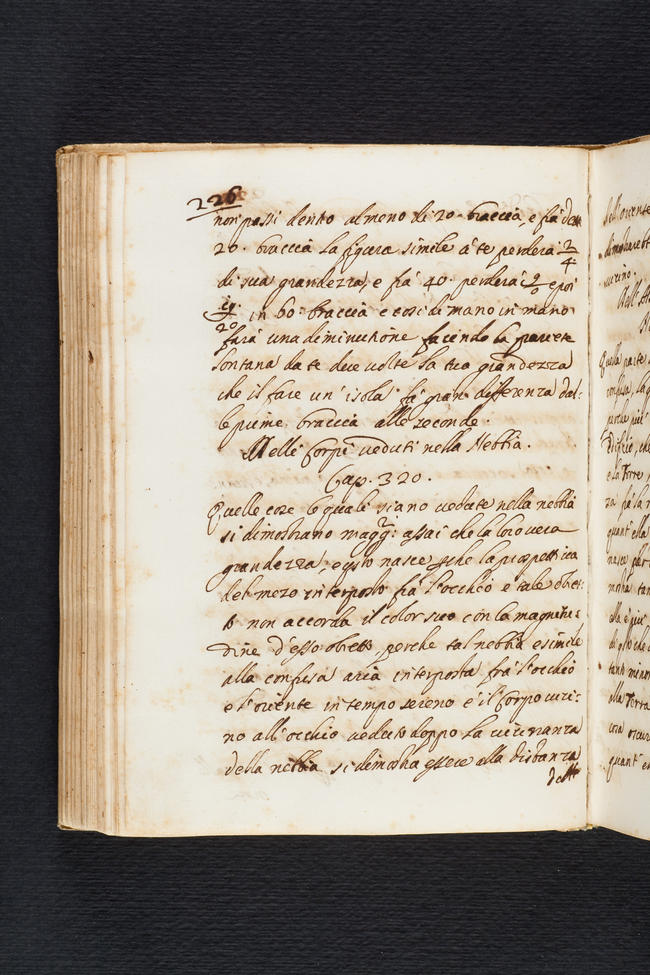 226
non possi dentro almeno di 20. braccia, e frà dette
20. braccia la figura simile à te perderà 2/4
di sua grandezza, e frà 40. perderà 9/0 e poi
19/20 in 60. braccia e così di mano in mano
farà una diminutione facendo la parete
lontana da te due volte la tua grandezza
che il fare un' isola fà gran differenza dal-
le prime braccia alle seconde.
Delli Corpi veduti nella Nebbia.
Cap. 320.
Quelle cose le quali siano vedute nella nebbia
si dimostrano magg:ri assai che la loro vera
grandezza, e qsto nasce che la prospettiva
del mezo interposto frà l'occhio e tale obiet-
to non accorda il color suo con la magnitu-
dine d'esso obietto, perche tal nebbia e simile
alla confusa aria interposta frà l'occhio
e l'oriente in tempo sereno e il Corpo vici-
no all'occhio veduto doppo la vicinanza
della nebbia si dimostra essere alla distanza
dell'
dell'oriente
dimostrarebbe
vicino.
Quella parte
confusa, la
perche più
Edificio, che
e la Torre
za frà la
quant'ella
nasce
mostra
alla e più
tanto minor
alla Terra
cosa oscura
quant'e